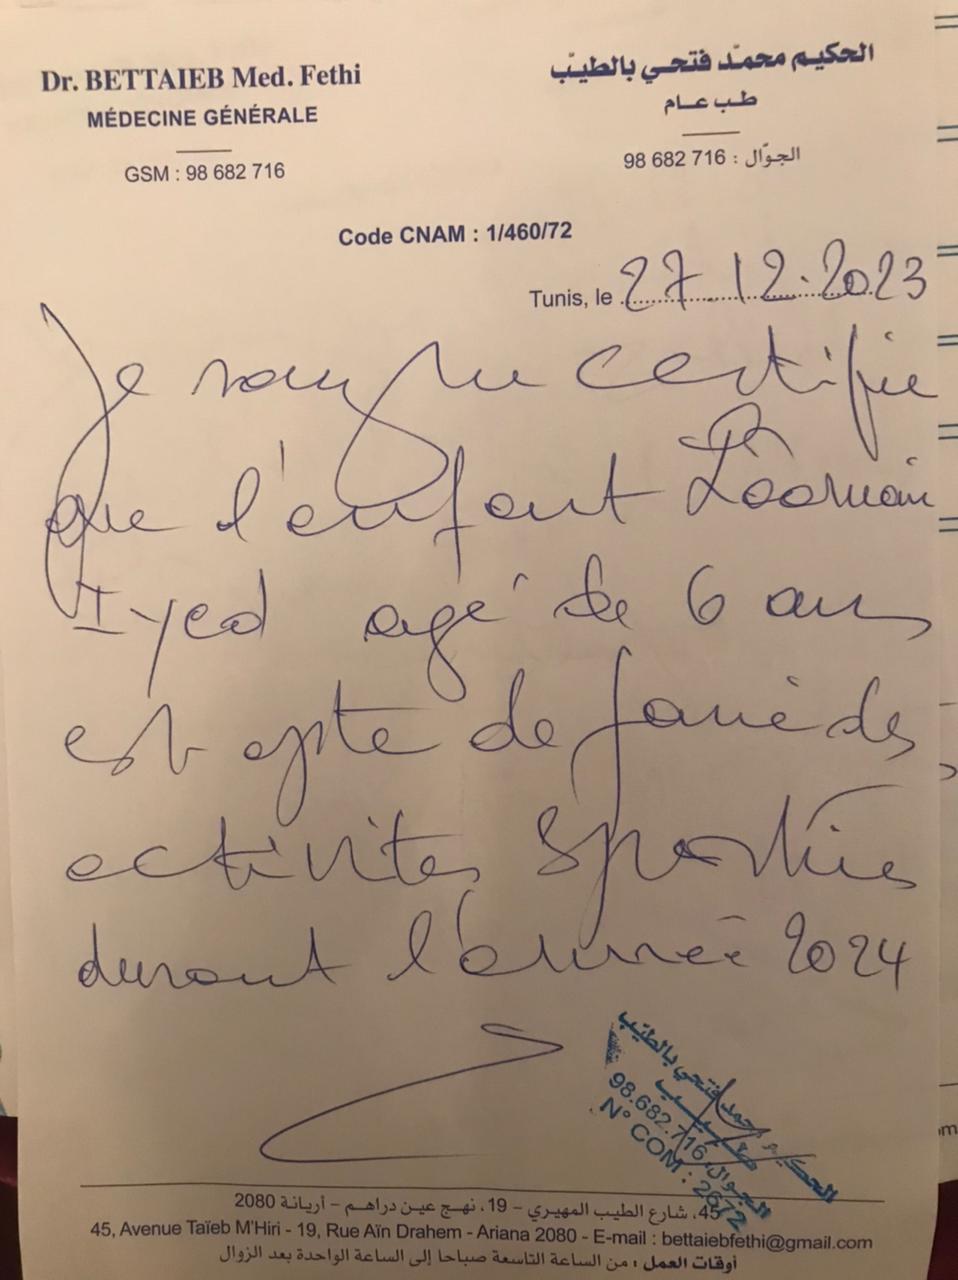 Dr. BETTAIEB Med. Fethi
MÉDECINE GÉNÉRALE
GSM : 98 682 716
الحكيم محمّد فتحي بالطيّب
طب عام
الجوّال : 716 682 98
Code CNAM : 1/460/72
Tunis, le 27.12.2023
Je certifie
que l'enfant
Iyed agé de 6 ans
est apte de faire des
activités sportives
durant l'année 2024
الحكيم محمد فتحي بالطيّب
طبيب
الجوال: 98.682.716
N° COM : 2672
45، شارع الطيب المهيري – 19، نهج عين دراهم – أريانة 2080
45, Avenue Taïeb M'Hiri - 19, Rue Aïn Drahem - Ariana 2080 - E-mail : bettaiebfethi@gmail.com
أوقات العمل : من الساعة التاسعة صباحا إلى الساعة الواحدة بعد الزوال